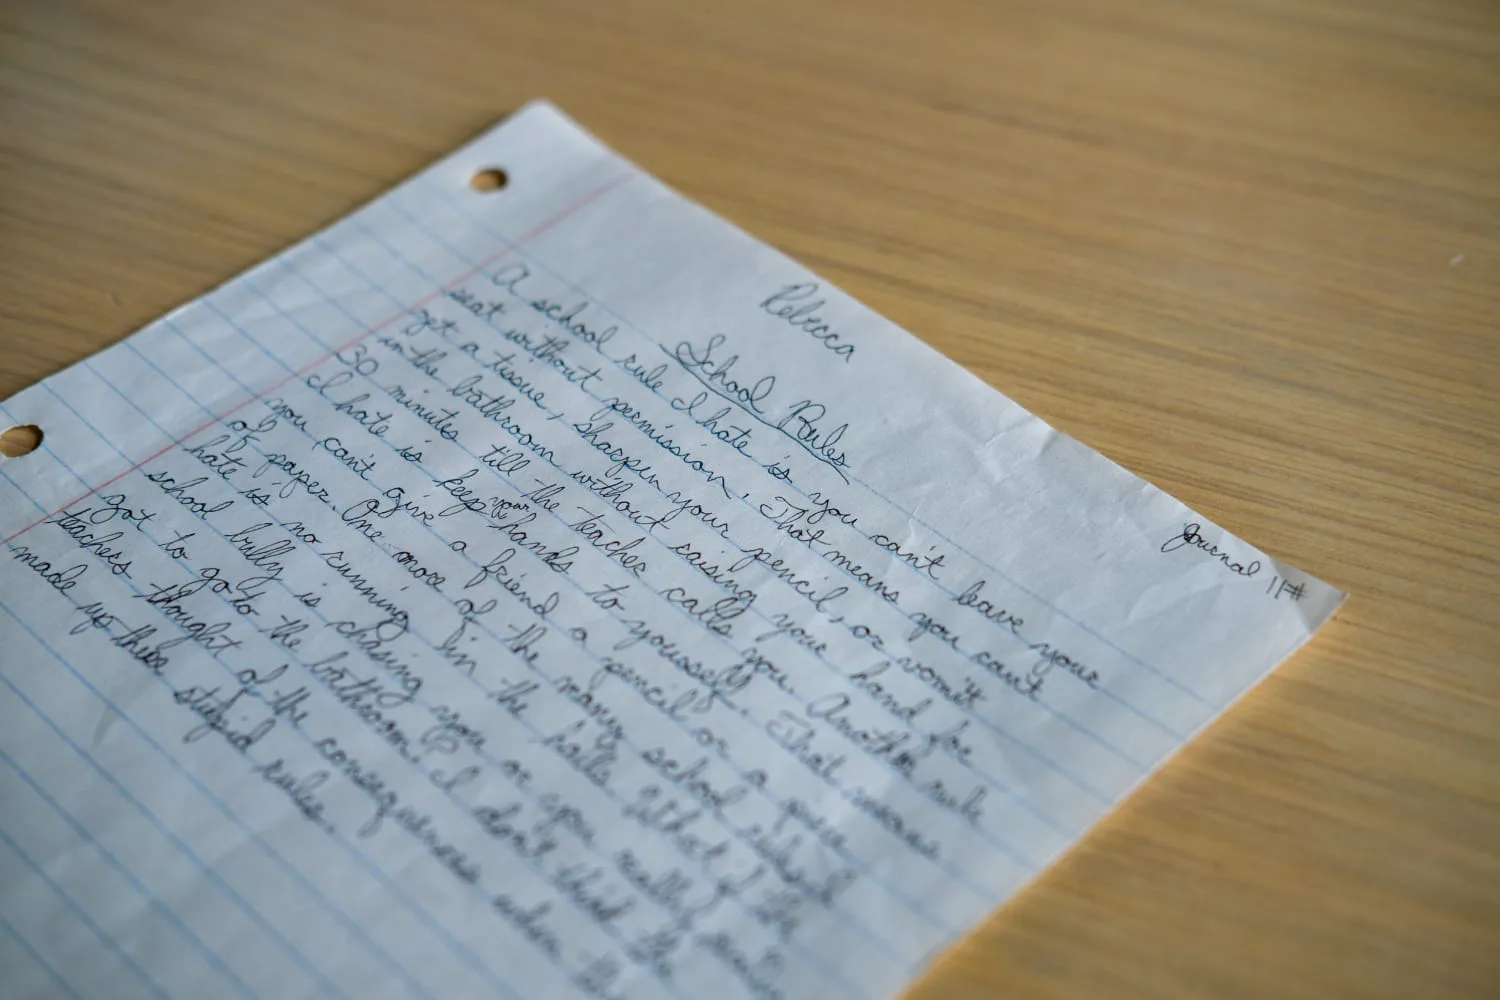 Rebecca
Journal 11#
School Rules
A school rule I hate is you can't leave your
seat without permission. That means you can't
get a tissue, sharpen your pencil, or vomit
in the bathroom without raising your hand for
30 minutes till the teacher calls you. Another rule
I hate is keep your hands to yourself. That means
you can't give a friend a pencil or a piece
of paper. One more of the many school rules I
hate is no running in the halls. What if the
school bully is chasing you or you really really
got to go to the bathroom. I don't think the
teachers thought of the consequences when they
made up these stupid rules.